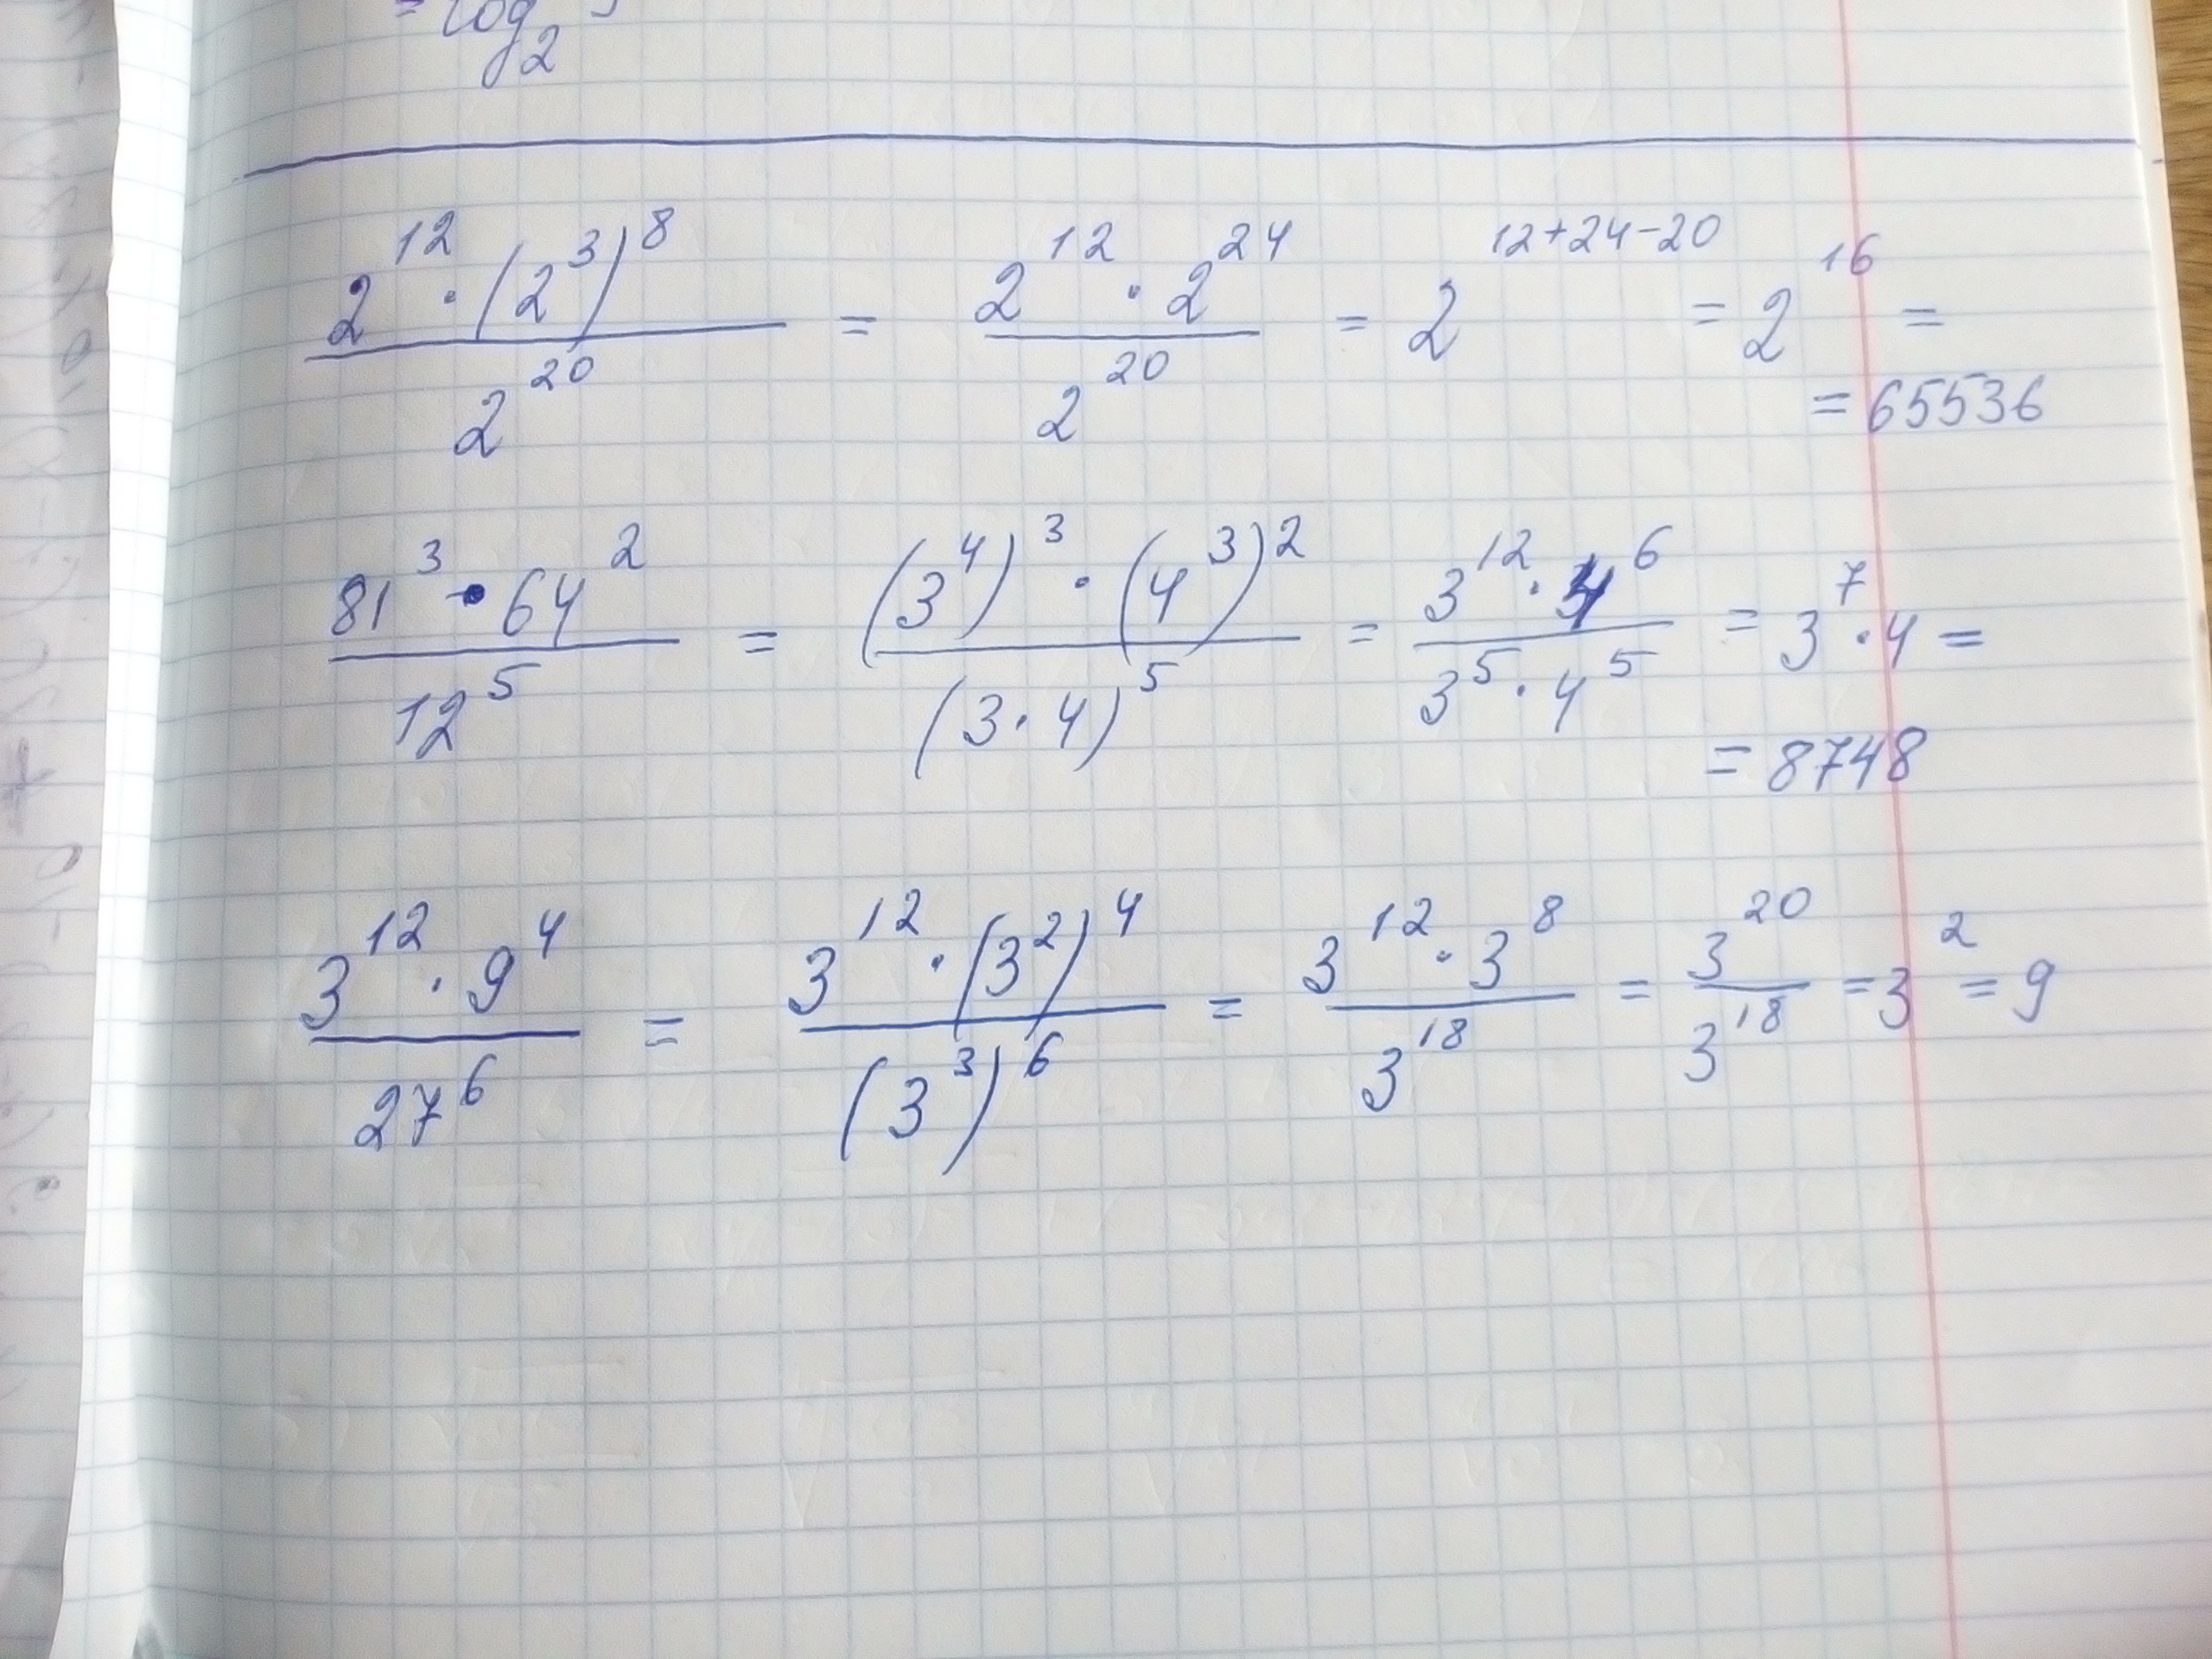 = log₂
2¹² · (2³)⁸ / 2²⁰ = 2¹² · 2²⁴ / 2²⁰ = 2¹²⁺²⁴⁻²⁰ = 2¹⁶ =
= 65536
81³ · 64² / 12⁵ = (3⁴)³ · (4³)² / (3·4)⁵ = 3¹² · 4⁶ / 3⁵ · 4⁵ = 3⁷ · 4 =
= 8748
3¹² · 9⁴ / 27⁶ = 3¹² · (3²)⁴ / (3³)⁶ = 3¹² · 3⁸ / 3¹⁸ = 3²⁰ / 3¹⁸ = 3² = 9